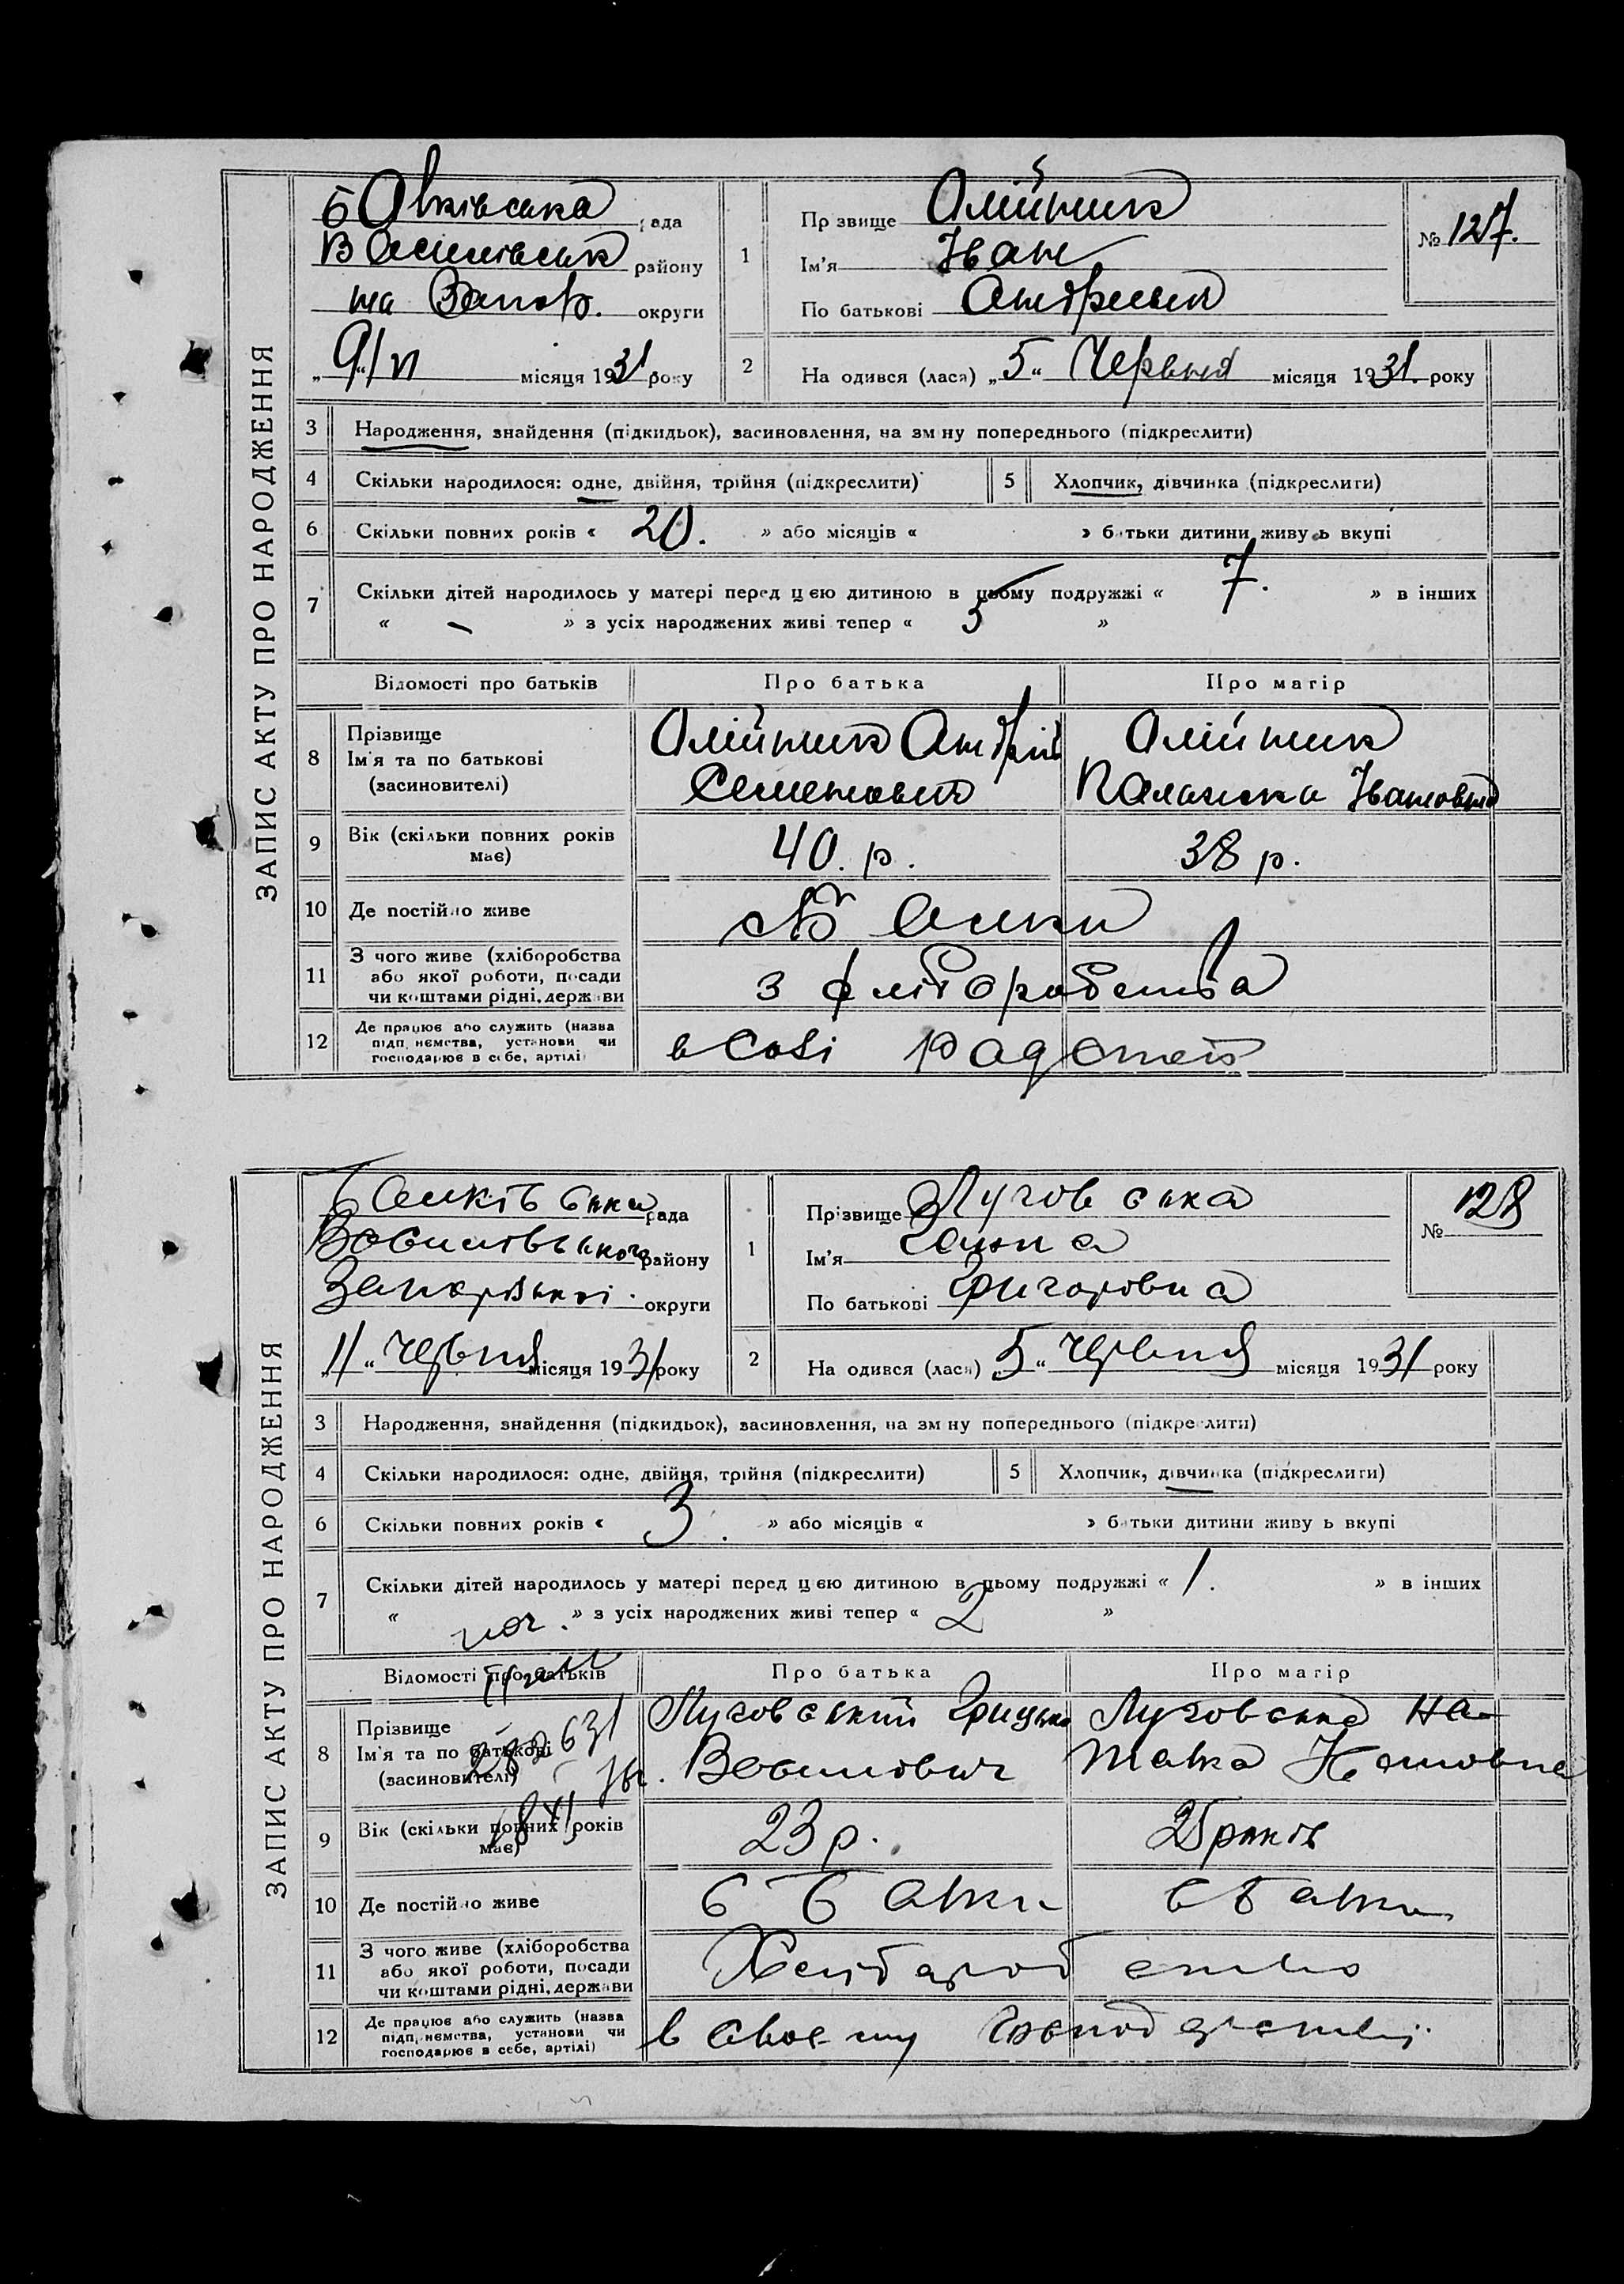 ЗАПИС АКТУ ПРО НАРОДЖЕННЯ
рада
району
та Запор. округи
„9“/VI місяця 1931 року
1
Пр звище Олійник
Ім'я Іван
По батькові Андреевич
№ 127.
2
На одився (лася) „5“ Червня місяця 1931. року
3 Народження, знайдення (підкидьок), засиновлення, на зм ну попереднього (підкреслити)
4 Скільки народилося: одне, двійня, трійня (підкреслити)
5 Хлопчик, дівчинка (підкреслити)
6 Скільки повних років « 20. » або місяців « » б тьки дитини живу ь вкупі
7 Скільки дітей народилось у матері перед ц єю дитиною в цьому подружжі « 7. » в інших
« - » з усіх народжених живі тепер « 3 »
Відомості про батьків
Про батька
Про матір
8 Прізвище
Ім'я та по батькові
(засиновителі)
Олійник Андрій
Семенович
Олійник
Палажка Івановна
9 Вік (скільки повних років
має)
40. р.
38 р.
10 Де постійно живе
Б Балки
11 З чого живе (хліборобства
або якої роботи, посади
чи коштами рідні, держави
з хліборобства
12 Де працює або служить (назва
підп. иємства, установи чи
господарює в себе, артілі
в
ЗАПИС АКТУ ПРО НАРОДЖЕННЯ
Балківська рада
Василівського району
Запорізької округи
„11“ Червня місяця 1931 року
1
Прізвище Луговська
Ім'я Ганна
По батькові Григоровна
№ 128
2
На одився (лася) „5“ Червня місяця 1931 року
3 Народження, знайдення (підкидьок), засиновлення, на зм ну попереднього (підкреслити)
4 Скільки народилося: одне, двійня, трійня (підкреслити)
5 Хлопчик, дівчинка (підкреслити)
6 Скільки повних років « 3. » або місяців « » б тьки дитини живу ь вкупі
7 Скільки дітей народилось у матері перед ц єю дитиною в цьому подружжі « 1. » в інших
« » з усіх народжених живі тепер « 2 »
Відомості про батьків
Про батька
Про матір
8 Прізвище
Ім'я та по батькові
(засиновителі)
Луговський Грицько
Василович
Луговська На-
талка
9 Вік (скільки повних років
має)
23 р.
25 років
10 Де постійно живе
с Б Балки
с Б Балки
11 З чого живе (хліборобства
або якої роботи, посади
чи коштами рідні, держави
Хліборобство
12 Де працює або служить (назва
підп. иємства, установи чи
господарює в себе, артілі)
в своєму господарстві